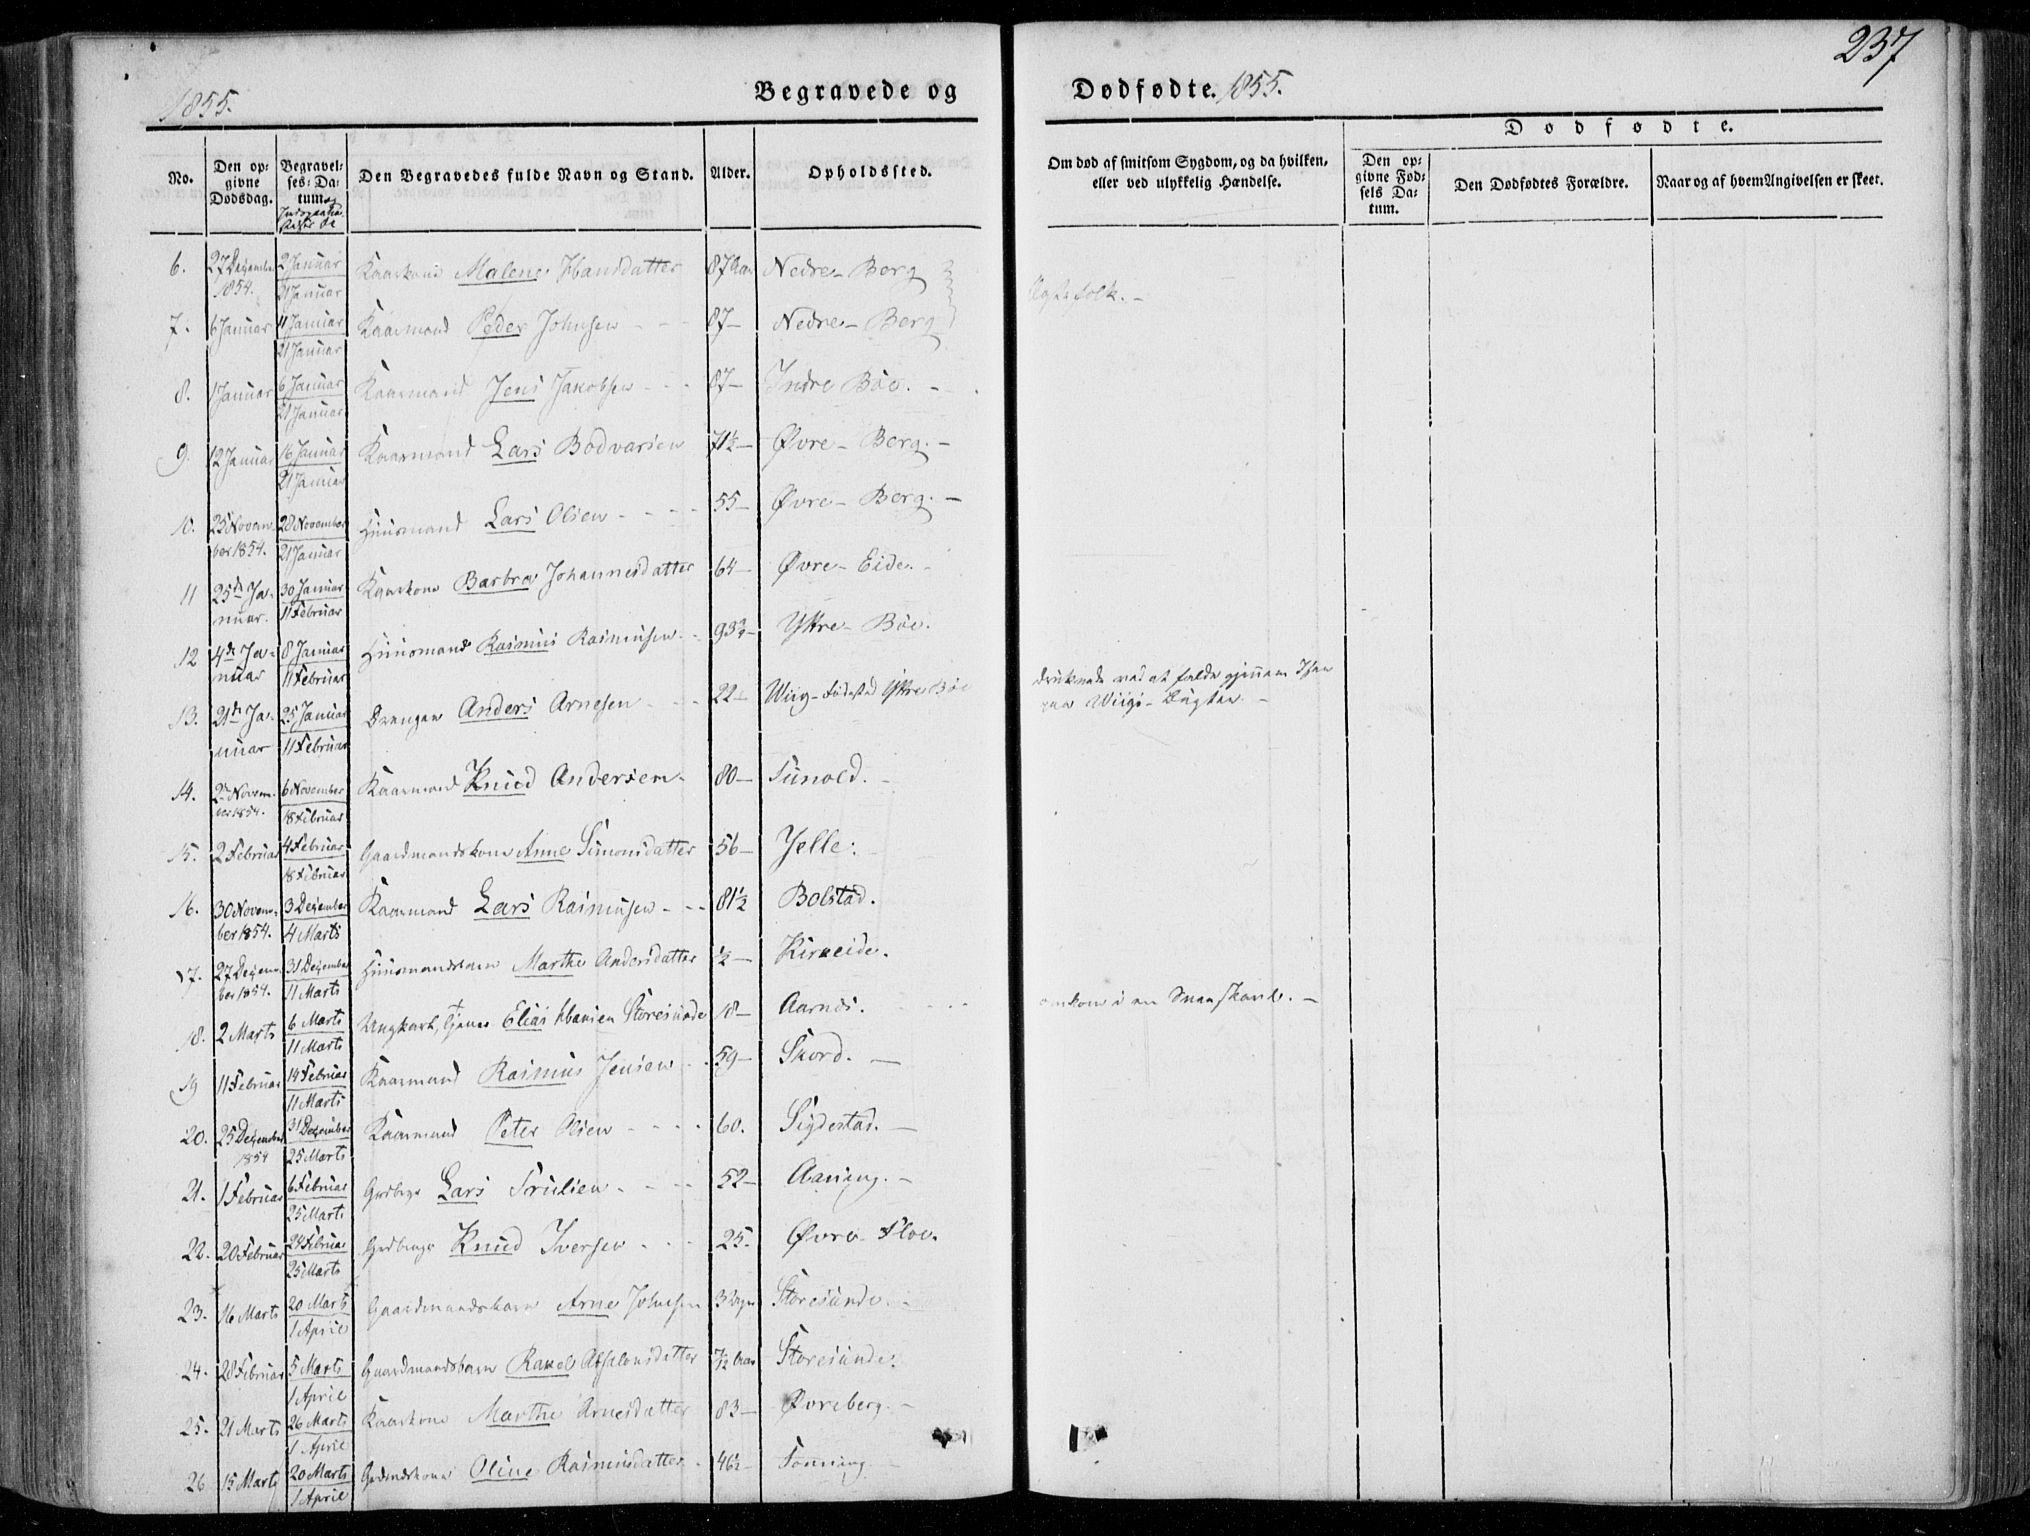 1855.
Begravede og
Dødfødte. 1855.
237
No.
Den op-
givne
Dødsdag.
Begravel-
ses-Da-
tum og
Den Begravedes fulde Navn og Stand.
Alder.
Opholdssted.
Om død af smitsom Sygdom, og da hvilken,
eller ved ulykkelig Hændelse.
Dødfødte.
Den op-
givne Fød-
sels Da-
tum.
Den Dødfødtes Forældre.
Naar og af hvem Angivelsen er skeet.
6. 27 Dezember 1854. 2 Januar 21 Januar Kaarkone Malene Hansdatter 87 Aar Nedre-Berg
Ægtefolk. -
7. 6 Januar 11 Januar 21 Januar Kaarmand Peder Johnsen - - 87- Nedre-Berg
8. 1 Januar 6 Januar 21 Januar Kaarmand Jens Jakobsen - - - 87- Indre Böe. -
9. 12 Januar 16 Januar 21 Januar Kaarmand Lars Bodvarsen 71½- Øvre-Berg. -
10. 25 Novem- ber 1854. 28 November 21 Januar Huusmand Lars Olsen - - - - 55- Øvre-Berg. -
11 25de Ja- nuar. 30 Januar 11 Februar Kaarkone Barbra Johannesdatter 64- Øvre-Eide. -
12 4de Ja- nuar 8 Januar 11 Februar Huusmand Rasmus Rasmusen. - 93¾- Yttre-Böe.
13. 21de Ja- nuar 25 Januar 11 Februar Drengen Anders Arnesen - - - 22- Wiig-Födested Yttre Böe
druknede ved at falde gjennem Isen
paa Wiigs-Bugten. -
14. 2 Novem- ber 1854. 6 November 18 Februar Kaarmand Knud Andersen. 80- Tunold. -
15. 2 Februar 4 Februar 18 Februar Gaardmandskone Anne Simonsdatter 56- Yelle.
16. 30 Novem- ber 1854. 3 Dezember 4 Marts Kaarmand Lars Rasmusen - - - 81½ Bolstad.
17. 27 Dezem- ber 1854. 31 Dezember 11 Marts Huusmandsbarn Marthe Andersdatter ½- Kirkeide.
18. 2 Marts 6 Marts 11 Marts Ungkarl, Tjener Elias Hansen Storesunde 18- Aarnes.
omkom i en Sneeskavl. -
19 11 Februar 14 Februar 11 Marts Kaarmand Rasmus Jensen - - 59- Skord. -
20. 25 Dezember 1854 31 Dezember 25 Marts Kaarmand Peter Olsen - - - - 60. Sigdestad. -
21. 1 Februar 6 Februar 25 Marts Lars Trulsen - - - 52- Aaning. -
22. 20 Februar 24 Februar 25 Marts Knud Iversen - - - 25. Øvre-Floe.
23. 16 Marts 20 Marts 1 April Gaardmandsbarn Arne Johnsen 3 Storesunde. -
24. 28 Februar 5 Marts 1 April Gaardmandsbarn Rakel Absalonsdatter 7/12 Aar Storesunde.
25. 21 Marts 26 Marts 1 April Kaarkone Marthe Arnesdatter 83- Øvreberg. -
26 15 Marts 20 Marts 1 April Oline Rasmusdatter - 46½- Tonning. -